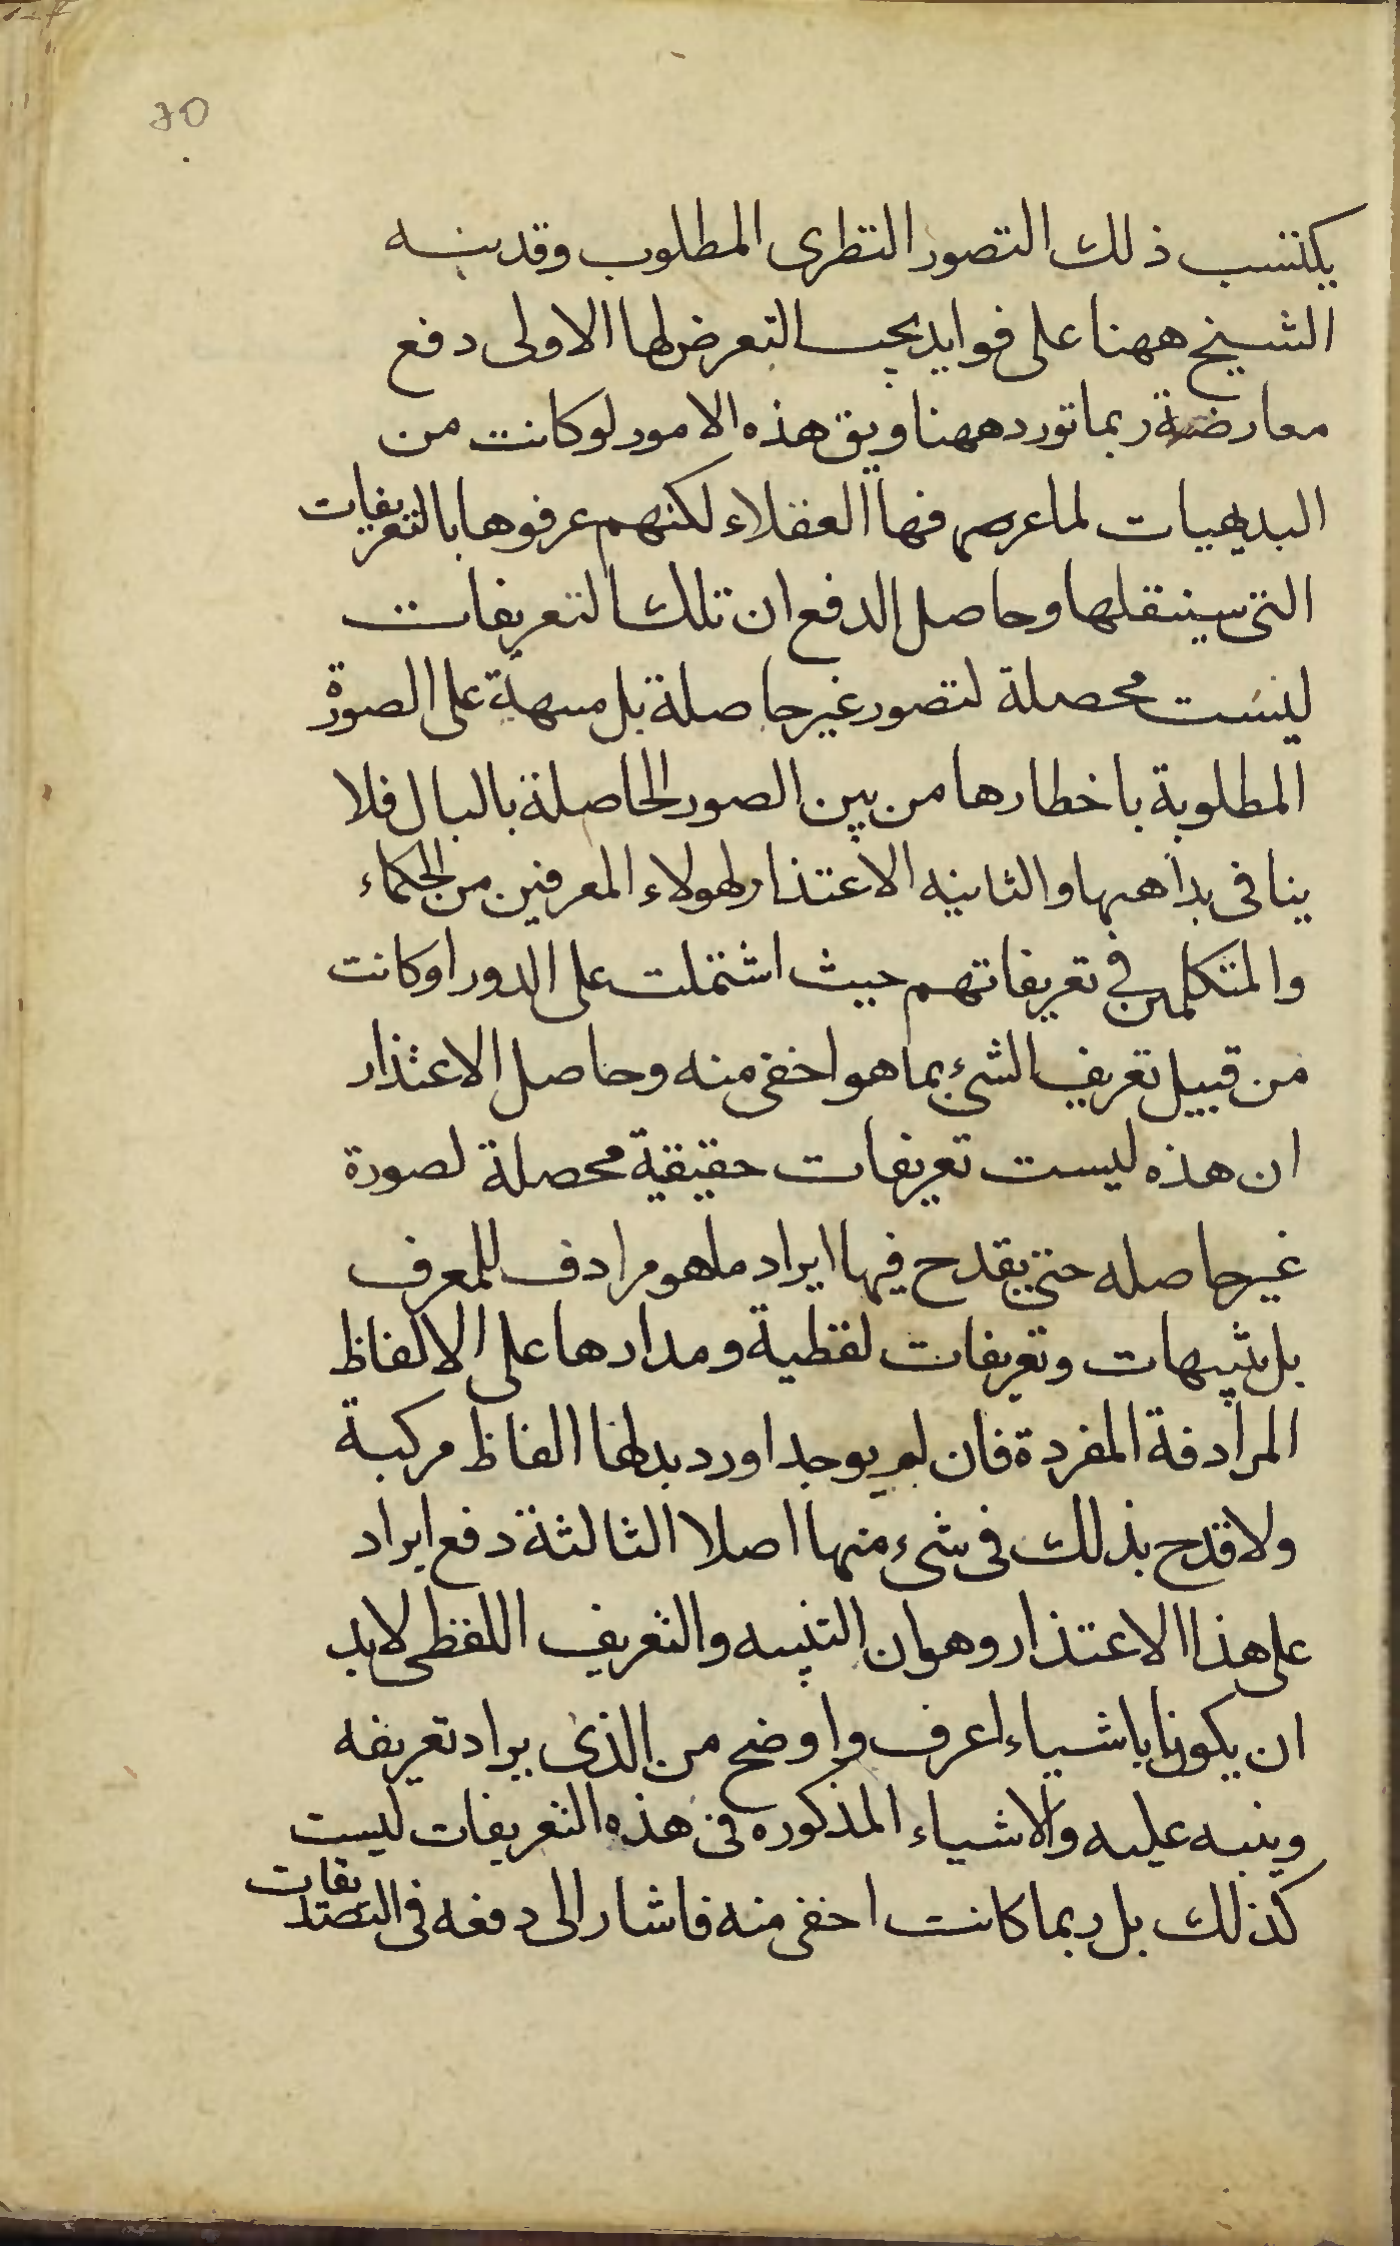 يكتسب ذلك التصور النظرى المطلوب وقد نبه
الشيخ ههنا على فوايد يجب التعرض لها الاولى دفع
معارضة ربما تورد ههنا ويق هذه الامور لو كانت من
البديهيات لما عرفها العقلاء لكنهم عرفوها بالتعريفات
التى سينقلها وحاصل الدفع ان تلك التعريفات
ليست محصلة لتصور غير حاصلة بل منبهة على الصورة
المطلوبة باخطارها من بين الصور الحاصلة بالبال فلا
ينافى بداهتها والثانيه الاعتذار لهولاء المعرفين من الحكماء
والمتكلمين فى تعريفاتهم حيث اشتملت على الدور او كانت
من قبيل تعريف الشئ بما هو اخفى منه وحاصل الاعتذار
ان هذه ليست تعريفات حقيقية محصلة لصورة
غير حاصله حتى يقدح فيها ايراد ما هو مرادف للمعرف
بل تنبيهات وتعريفات لفظية ومدارها على الالفاظ
المرادفة المفردة فان لم يوجد اورد بدلها الفاظ مركبة
ولا قدح بذلك فى شىء منها اصلا الثالثة دفع ايراد
على هذا الاعتذار وهو ان التنبيه والتعريف اللفظى لابد
ان يكونا باشياء اعرف واوضح من الذى يراد تعريفه
وينبه عليه والاشياء المذكوره فى هذه التعريفات ليست
كذلك بل ربما كانت اخفى منه فاشار الى دفعه فى التصديقات